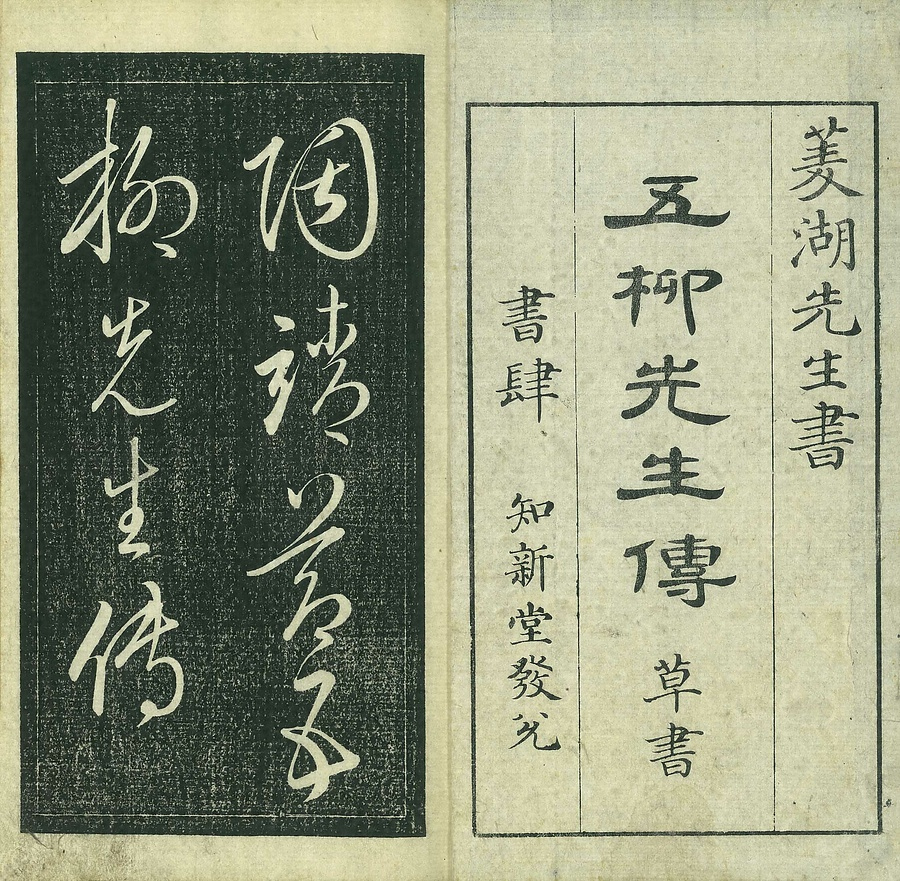 菱湖先生書
五柳先生傳 草書
書肆 知新堂發兌
陶靖節五
柳先生傳